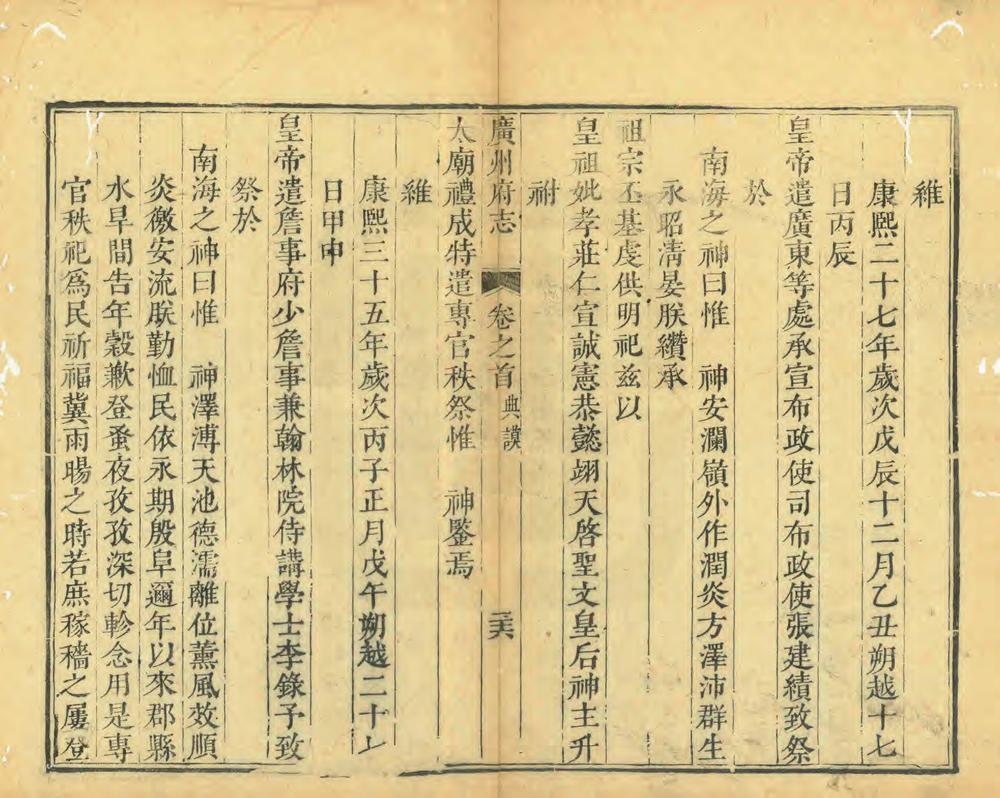 維
康熙二十七年歲次戊辰十二月乙丑朔越十七
日丙辰
皇帝遣廣東等處承宣布政使司布政使張建績致祭
於
南海之神曰惟　神安瀾嶺外作潤炎方澤沛群生
永昭淸晏朕纘承
祖宗丕基虔供明祀兹以
皇祖妣孝莊仁宣誠憲恭懿翊天啓聖文皇后神主升
祔
廣州府志　卷之首　典謨
太廟禮成特遣專官秩祭惟　神鑒焉
維
康熙三十五年歲次丙子正月戊午朔越二十
日甲申
皇帝遣詹事府少詹事兼翰林院侍講學士李錄予致
祭於
南海之神曰惟　神澤溥天池德濡離位薰風效順
炎徼安流朕勤恤民依永期殷阜邇年以來郡縣
水旱間告年穀歉登蚤夜孜孜深切軫念用是專
官秩祀爲民祈福冀雨暘之時若庶稼穡之屢登